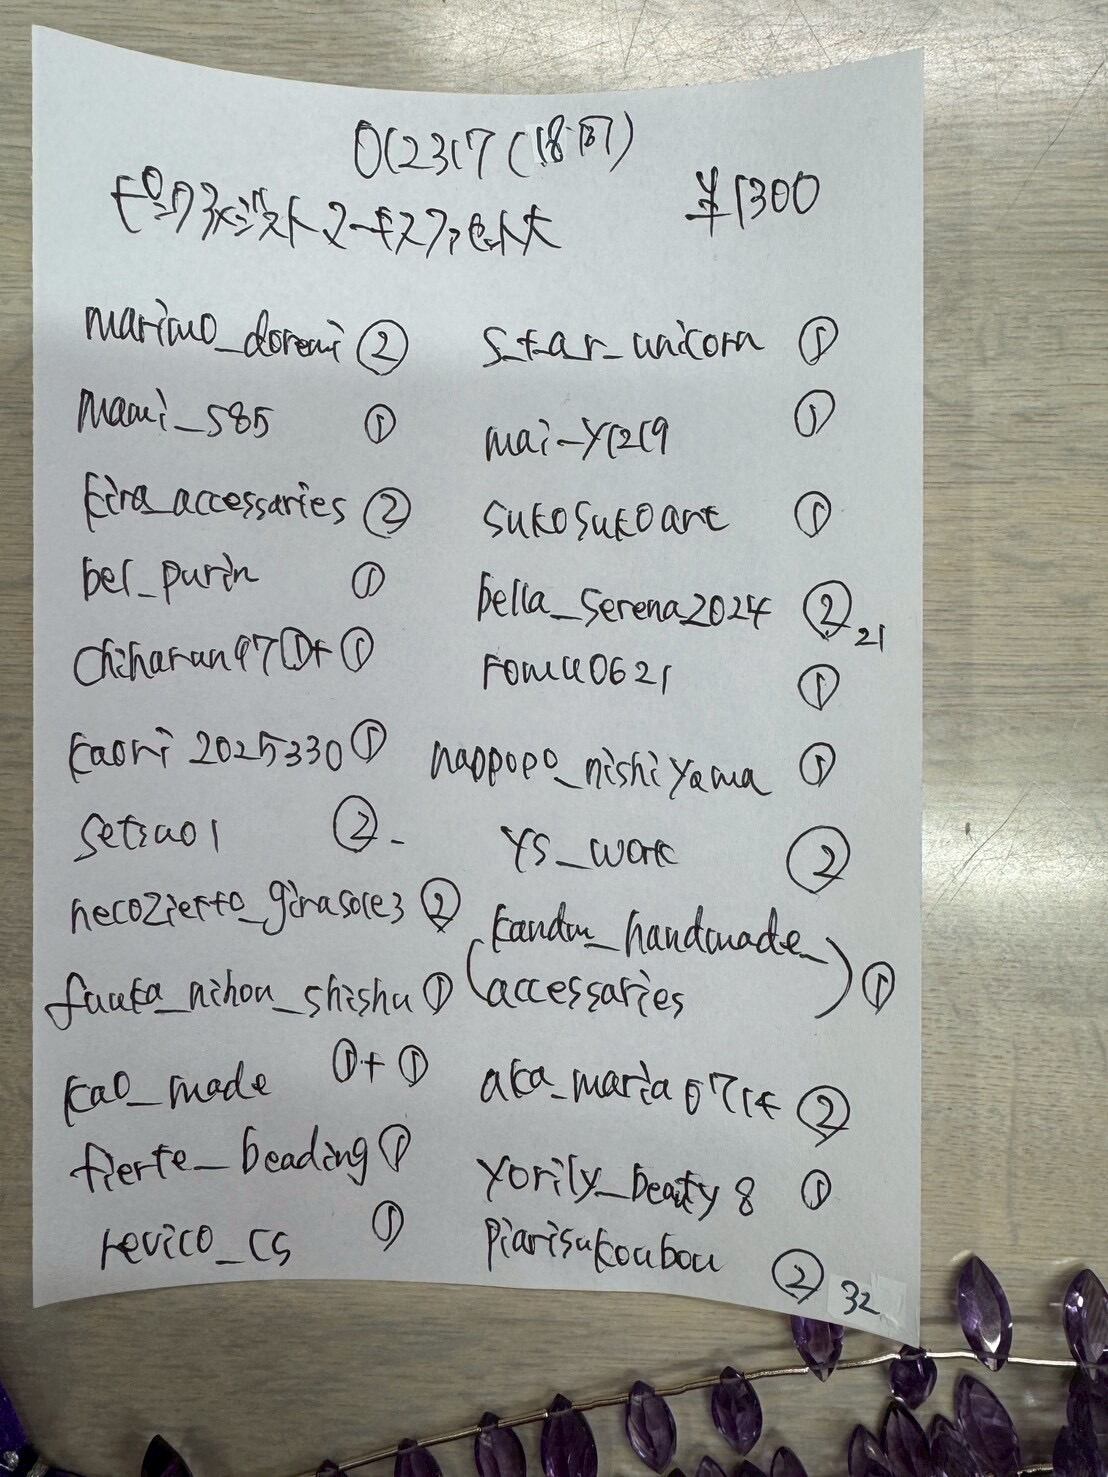 012317(18问)
ピンクアメジストマーキスファセット大
¥1300
marimo_doremi ②
mami_585 ①
kira_accessaries ②
bel_purin ①
chiharun97 ①+①
kaori2025330 ①
setsuo1 ②
necozietto_girasole3 ②
fuuka_nihon_shishu ①
kao_made ①+①
fierte_beading ①
revico_cs ①
s_t_a_r_unicorn ①
mai-y1219 ①
sukosukoart ①
bella_serena2024 ② 21
romu0621 ①
nappopo_nishiyama ①
ys_work ②
(kandm_handmade_
accessaries) ①
aka_maria0714 ②
yorily_beauty8 ①
piarisukoubou ② 32